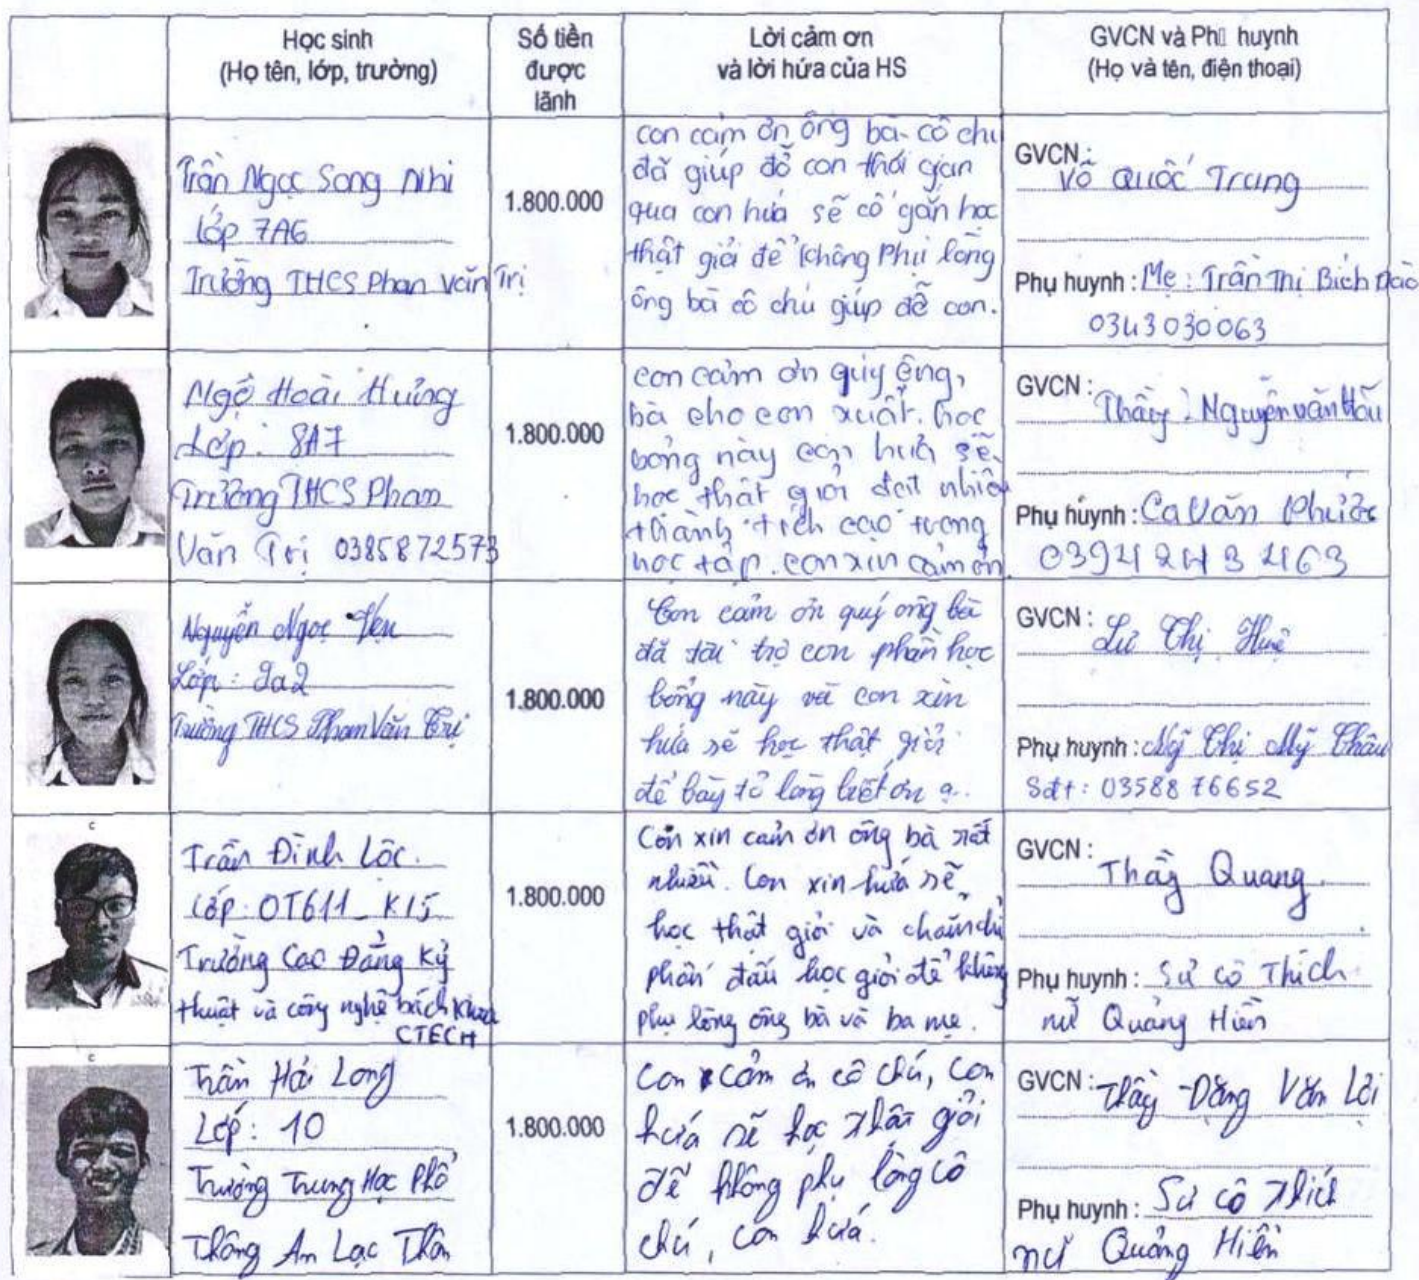 Học sinh
(Họ tên, lớp, trường)
Số tiền
được
lãnh
Lời cảm ơn
và lời hứa của HS
GVCN và Phụ huynh
(Họ và tên, điện thoại)
Trần Ngọc Song Nhi
Lớp 7A6
Trường THCS Phan Văn Trị
1.800.000
con cảm ơn ông bà cô chú
đã giúp đỡ con thời gian
qua con hứa sẽ cố gắn học
thật giỏi để không Phụ lòng
ông bà cô chú giúp đỡ con.
GVCN :
Võ Quốc Trung
Phụ huynh : Mẹ : Trần Thị Bích Đào
0343030063
Ngô Hoài Hưng
Lớp : 8A7
Trường THCS Phan
Văn Trị 0385872573
1.800.000
con cảm ơn quý ông,
bà cho con xuất học
bỏng này con hứa sẽ
học thật giỏi đạt nhiều
thành tích cao trong
học tập. con xin cảm ơn
GVCN : Thầy : Nguyễn văn Hữu
Phụ huynh : Ca Văn Phước
0394243463
Nguyễn Ngọc Vẹn
Lớp : 9a2
Trường THCS Phan Văn Trị
1.800.000
Con cảm ơn quý ông bà
đã tài trợ con phần học
bổng này và con xin
hứa sẽ học thật giỏi
để bày tỏ lòng biết ơn ạ..
GVCN : Lư Thị Huệ
Phụ huynh : Ngô Thị Mỹ Châu
Sđt : 0358876652
c
Trần Đình Lộc.
Lớp: OT611_K15
Trường Cao Đẳng Kỹ
thuật và công nghệ bách khoa
CTECH
1.800.000
Con xin cảm ơn ông bà rất
nhiều. Con xin hứa sẽ
học thật giỏi và chăm chỉ
phấn đấu học giỏi để không
phụ lòng ông bà và ba mẹ.
GVCN : Thầy Quang
Phụ huynh : Sư cô Thích
nữ Quảng Hiền
c
Trần Hải Long
Lớp: 10
Trường Trung Học Phổ
Thông An Lạc Thôn
1.800.000
Con cảm ơn cô chú, con
hứa sẽ học thật giỏi
để không phụ lòng cô
chú, con hứa.
GVCN : Thầy Đặng Văn Lợi
Phụ huynh : Sư cô Thích
nữ Quảng Hiền